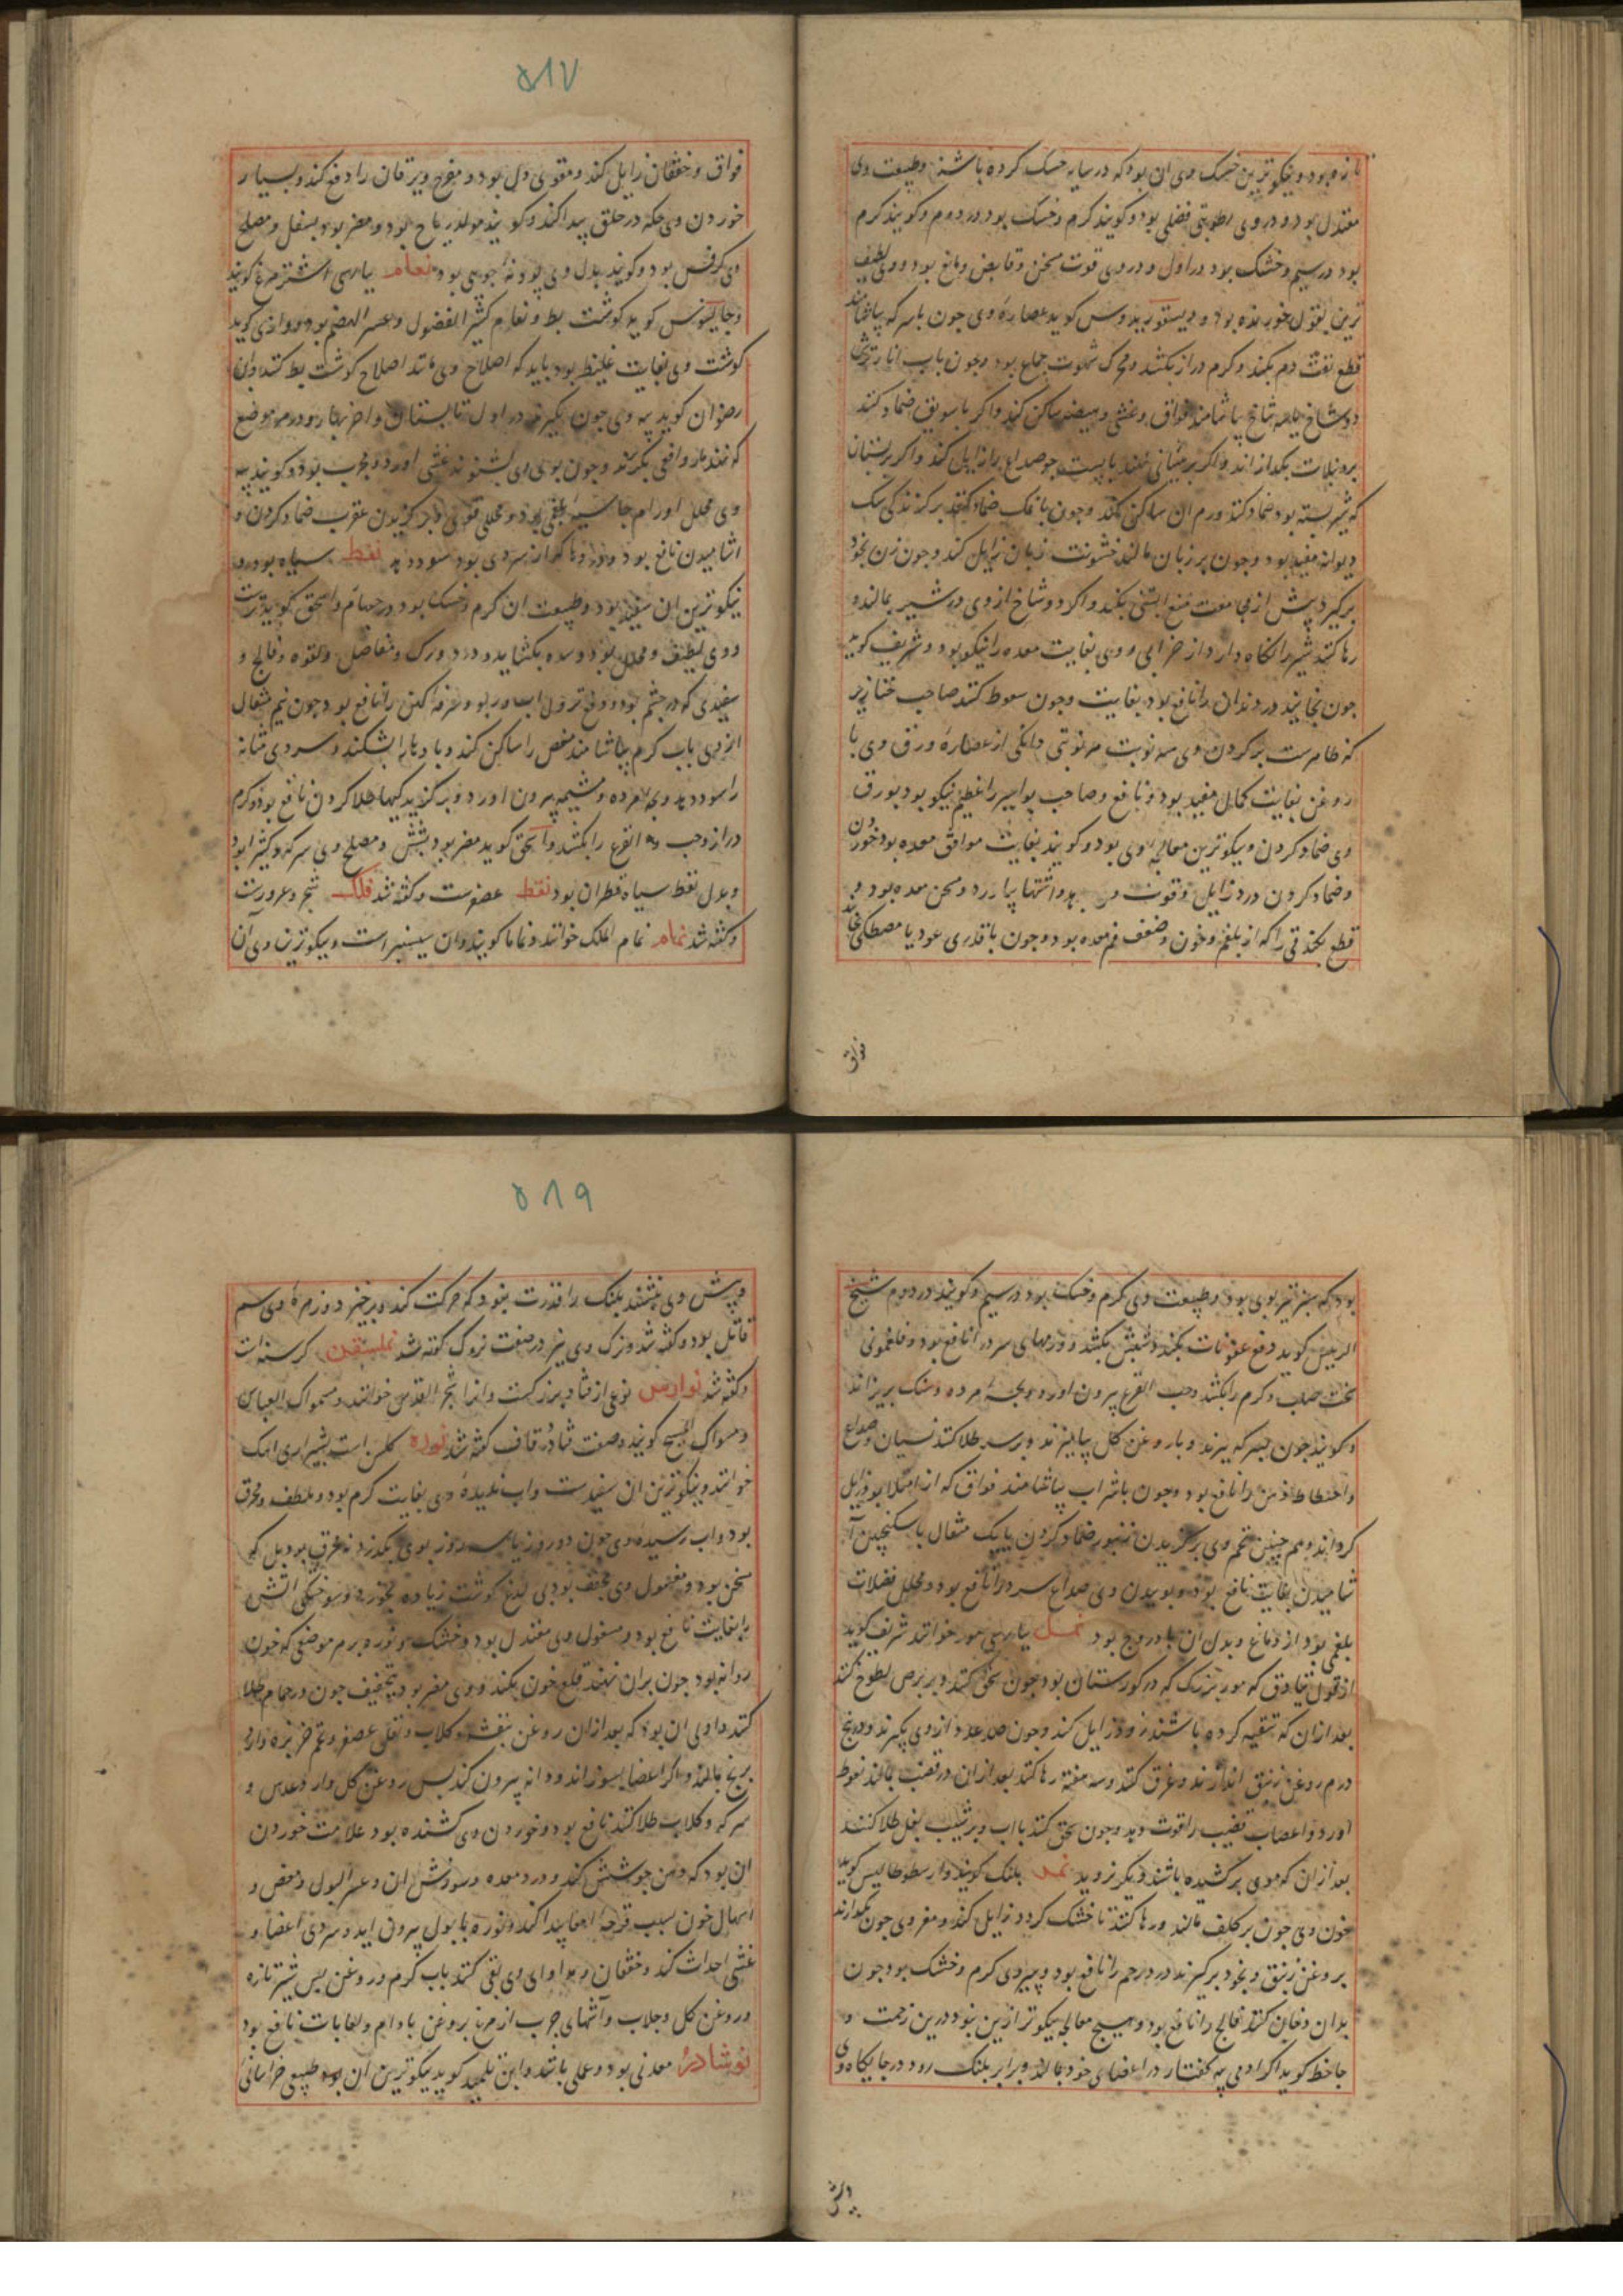 تازه بود و نیکوترین خشک وی آن بود که در سایه خشک کرده باشند و طبیعت وی
معتدل بود و در وی رطوبتی فضلی بود و کویند کرم و خشک بود در دوم و کویند کرم
بود در سیم و خشک بود در اول و در وی قوت مسخن و قابض و مانع بود و وی لطیف
ترین بقول خورنده بود و دیسقوریدوس کوید عصاره وی چون با سرکه بیاشامند
قطع نفث دم بکند و کرم دراز بکشد و محرک شهوت جماع بود و چون باب انار ترش
دو شاخ یا سه شاخ بیاشامند فواق و غشی و هیضه ساکن کند و اکر با سویق ضماد کنند
بر دبیلات بکدازاند و اکر بر پیشانی نهند با پست جو صداع را زایل کند و اکر بر پستان
که شیر بسته بود ضماد کنند ورم آن ساکن کند و چون با نمک ضماد کنند بر کزندکی سک
دیوانه مفید بود و چون بر زبان مالند خشونت زبان زایل کند و چون زن بخود
برکیرد پیش از مجامعت منع آبستنی بکند و اکر دو شاخ از وی در شیر بمالند و
رها کنند شیر را نکاه دارد از خرابی و وی بغایت معده را نیکو بود و شریف کوید
چون بخایند درد دندان را نافع بود بغایت و چون سعوط کنند صاحب خنازیر
که ظاهرست بر کردن وی سه نوبت هر نوبتی دانکی از عصاره ورق وی با
روغن بغایت کمال مفید بود و نافع و صاحب بواسیر را عظیم نیکو بود بورق
وی ضماد کردن و نیکوترین معالجه وی بود و کویند بغایت موافق معده بود خوردن
و ضماد کردن درد زایل و قوت وی بدهد و اشتها بیاورد و مسخن معده بود و
قطع بکند قی را که از بلغم و خون و ضعف فم معده بود و چون با قدری عود یا مصطکی بخایند
فواق
۵۸۷
فواق و خفقان زایل کند و مقوی دل بود و مفرح و یرقان را دفع کند و بسیار
خوردن وی حکه در حلق پیدا کند و کویند مولد ریاح بود و مضر بود بسفل و مصلح
وی کرفس بود و کویند بدل وی پودنه جویی بود نعام بپارسی اشترمرغ کویند
و جالینوس کوید کوشت بط و نعام کثیر الفضول و عسر الهضم بود و رازی کوید
کوشت وی بغایت غلیظ بود باید که اصلاح وی مانند اصلاح کوشت بط کنند و ابن
رضوان کوید پیه وی چون بکیرند در اول تابستان و آخر بهار و در هر موضع
که نهند مار و افعی بکریزند و چون بوی وی بشنوند غشی آورد و مجرب بود و کویند پیه
وی محلل اورام جاسیه بلغمی بود و محللی قوی و بر کزیدن عقرب ضماد کردن و
آشامیدن نافع بود و دردها که از سردی بود سود دهد نفط سیاه بود و
نیکوترین آن سفید بود و طبیعت آن کرم و خشک بود در چهارم و اسحق کوید ترست
و وی لطیف و محلل بود و سده بکشاید و درد ورک و مفاصل و لقوه و فالج و
سفیدی که در چشم بود و دفع نزول آب و ربو و سرفه کهن را نافع بود چون نیم مثقال
از وی باب کرم بیاشامند مغص را ساکن کند و بادها را بشکند و سردی مثانه
را سود دهد و بچه مرده و مشیمه بیرون آورد و بر کزیدکیها طلا کردن نافع بود و کرم
دراز و حب القرع را بکشد و اسحق کوید مضر بود بشش و مصلح وی سرکه و کثیرا بود
و بدل نفط سیاه قطران بود نفط عصفرست و کفته شد فلک شجر دعرورست
و کفته شد نمام نمام الملک خوانند و نماما کویند و آن سیسنبر است و نیکوترین وی آن
بود که سبز تیز بوی بود و طبیعت وی کرم و خشک بود در سیم و کویند در دوم شیخ
الرییس کوید دفع عفونات بکند و شپش بکشد و ورمهای سرد را نافع بود و فلغمونی
سخت صلب و کرم را بکشد و حب القرع بیرون آورد و بچه مرده و سنک بریزاند
و کویند چون بسرکه بپزند و با روغن کل بیامیزند و بر سر طلا کنند نسیان و صداع
و اختلاط ذهن را نافع بود و چون باشراب بیاشامند فواق که از امتلا بود زایل
کرداند و همچنین تخم وی بر کزیدن زنبور ضماد کردن یا یک مثقال با سکنجبین آ
شامیدن بغایت نافع بود و بوییدن وی صداع سرد را نافع بود و محلل فضلات
بلغمی بود از دماغ و بدل آن بادروج بود نمل بپارسی مور خوانند شریف کوید
از قول قیادق که مور بزرک که در کورستان بود چون سحق کنند و بر برص لطوخ کنند
بعد از آن که تنقیه کرده باشند زود زایل کند و چون صد عدد از وی بکیرند و در پنج
درم روغن زنبق اندازند و غرق کنند و سه هفته رها کنند بعد از آن در قضیب مالند نعوظ
آورد و اعصاب قضیب را قوت دهد و چون سحق کنند باآب و بر شیب بغل طلا کنند
بعد از آن که موی برکشیده باشند دیکر نروید نمر پلنک کویند و ارسطوطالیس کوید
خون وی چون بر کلف مالند و رها کنند تا خشک کردد زایل کند و مغز وی چون بکدازند
بروغن زنبق و بخود برکیرند درد رحم را نافع بود و پیه وی کرم و خشک بود چون
بدان دهان کنند فالج را نافع بود و هیچ معالجه نیکوتر ازین نبود درین زحمت و
جاحظ کوید اکر آدمی پیه کفتار در اعضای خود بمالد و برابر پلنک رود در جایکاه وی
و پیش
۵۸۹
و پیش وی بنشیند پلنک را قدرت نبود که حرکت کند و برخیزد و زهره وی سم
قاتل بود و کفته شد و ترک وی نیز در صفت نزوک کفته شد نملسقن کرسنه است
و کفته شد نوارس نوعی از قثاد بزرکست و آنرا شجر القدس خوانند و مسواک العباس
و مسواک المسیح کویند و صفت قثاد در قاف کفته شد نوره کلس است بشیرازی اهک
خوانند و نیکوترین آن سفیدست و اب نادیده وی بغایت کرم بود و ملطف و محرق
بود و اب رسیده وی چون دو روز یا سه روز بروی بکذرد نه محرق بود بل که
مسخن بود و مغسول وی مجفف بود بی لذع کوشت زیاده بخورد و سوختکی آتش
را بغایت نافع بود و مغسول وی معتدل بود و خشک و نوره بر هر موضعی که خون
روانه بود چون بر آن نهند قطع خون بکند و وی مضر بود بتجفیف چون در حمام طلا
کنند و اولی آن بود که بعد از آن روغن بنفشه و کلاب و تفل عصفر و تخم خربزه و آرد
برنج بمالند و اکر اعضا بسوزاند و دانه بیرون کند پس روغن کل و آرد عدس و
سرکه و کلاب طلا کنند نافع بود و خوردن وی کشنده بود علامت خوردن
آن بود که دهن جوشش کند و درد معده و سوزش آن و عسر البول و مغص و
اسهال خون بسبب قرحه امعا پیدا کند و نوره با بول بیرون آید و سردی اعضا و
غشی احداث کند و خفقان و مداوای وی بقی کنند باب کرم و روغن پس شیر تازه
و روغن کل و جلاب و آشهای چرب از مرغ بروغن بادام و لعابات نافع بود
نوشادر معدنی بود و عملی باشد و ابن تلمیذ کوید نیکوترین آن بود طبیعی خراسانی